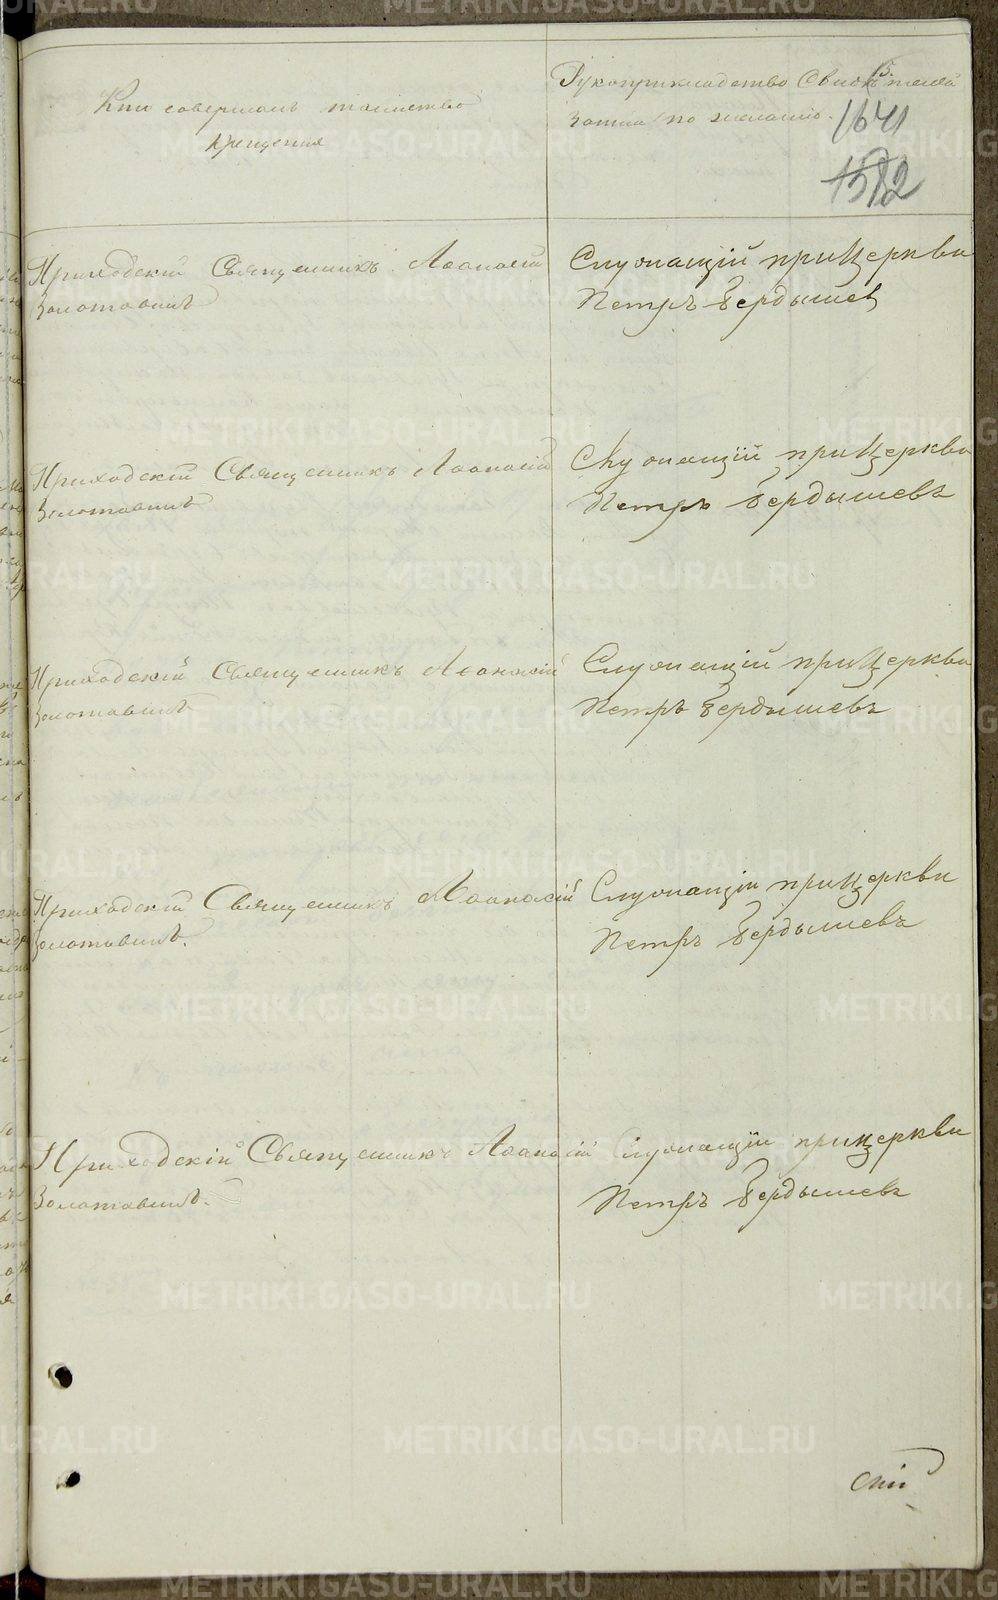 Кто совершалъ таинство
крещения
Рукоприкладство Свидѣтелей
Записи по желанію.
15.
1641
1582
Приходскій Священникъ Аѳанасій
Золотавинъ
Служащій при Церкви
Петръ Бердышев
Приходскій Священникъ Аѳанасій
Золотавинъ
Служащій при Церкви
Петръ Бердышевъ
Приходскій Священникъ Аѳанасій
Золотавинъ
Служащій при Церкви
Петръ Бердышевъ
Приходскій Священникъ Аѳанасій
Золотавинъ.
Служащіи при Церкви
Петръ Бердышевъ
Приходскій Священникъ Аѳанасій
Золотавинъ.
Служащіи при церкви
Петръ Бердышевъ
METRIKI.GASO-URAL.RU